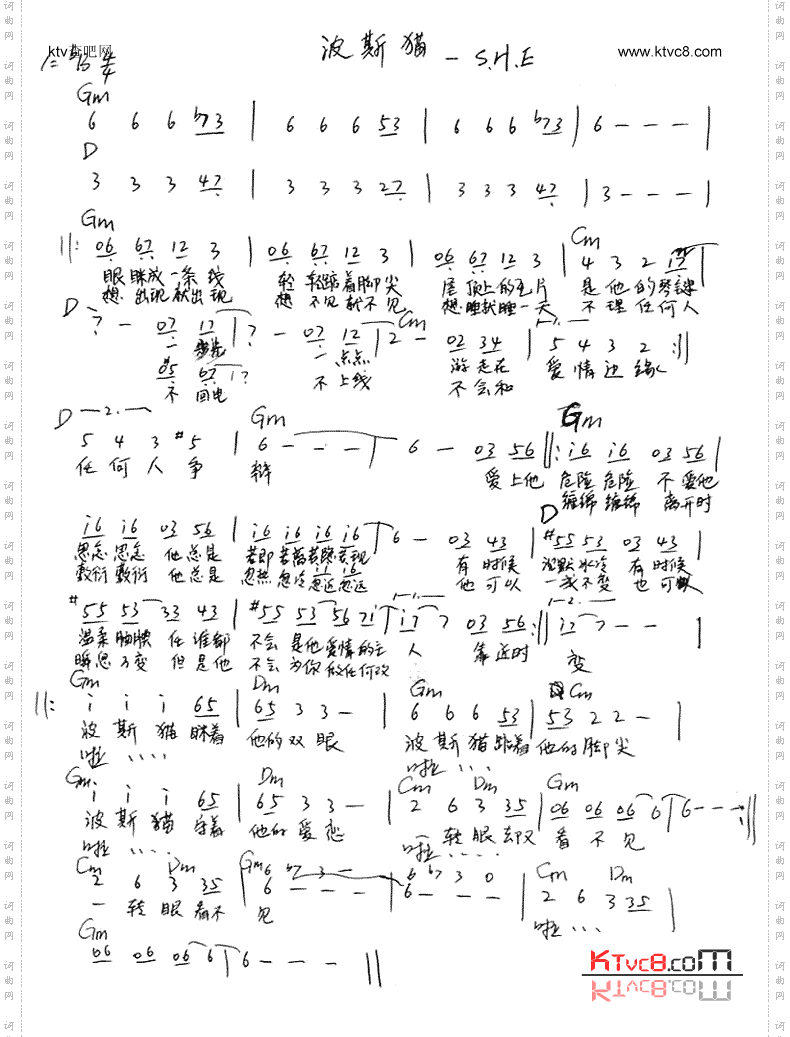 ktv歌吧网 波斯猫 - S.H.E www.ktvc8.com
1=♭B 4/4
Gm
6 6 6 ♭73 | 6 6 6 53 | 6 6 6 ♭73 | 6 - - - |
D
3 3 3 47 | 3 3 3 27 | 3 3 3 47 | 3 - - - |
Gm Cm
||: 06 67 12 3 | 06 67 12 3 | 06 67 12 3 | 4 3 2 17 |
眼眯成一条线 轻轻踮着脚尖 屋顶上的瓦片 是他的琴键
想出现就出现 想不见就不见 想睡就睡一天 不理任何人
D Cm
7 - 07 17 | 7 - 07 12 | 2 - 02 34 | 5 4 3 2 :||
一步步 一点点 游走在 爱情边缘
#05 67 17
不回电 不上线 不会和
D -2.- Gm Gm
5 4 3 #5 | 6 - - - | 6 - 03 56 ||: i6 i6 03 56 |
任何人争 辩 爱上他 危险危险 不爱他
缠绵缠绵 离开时
D
i6 i6 03 56 | i6 i6 i6 i6 | 6 - 03 43 | #55 53 03 43 |
思念思念 他总是 若即若离若隐若现 有时候 沉默冰冷 有时候
敷衍敷衍 他总是 忽热忽冷忽近忽远 他可以 一成不变 也可以
#55 53 33 43 | #55 53 56 7i | i7 7 03 56 :|| i7 7 - - |
温柔腼腆 任谁都 不会是他爱情的主 人 靠近时 变
瞬息万变 但是他 不会为你做任何改
Gm Dm Gm Cm
||: i i i 65 | 65 3 3 - | 6 6 6 53 | 53 2 2 - |
波斯猫眯着 他的双眼 波斯猫踮着 他的脚尖
啦.... 啦....
Gm Dm Cm Dm Gm
i i i 65 | 65 3 3 - | 2 6 3 35 | 06 06 06 6 | 6 - - - :||
波斯猫守着 他的爱恋 一转眼却又 看不见
啦.... 啦....
Cm Dm Gm 6 ♭7 3 - 6 ♭7 3 0 Cm Dm
2 6 3 35 | 6 - - - | 6 - - - | 2 6 3 35 |
一转眼看不 见 啦...
Gm
06 06 06 6 | 6 - - - ||
KTvc8.com
词曲网